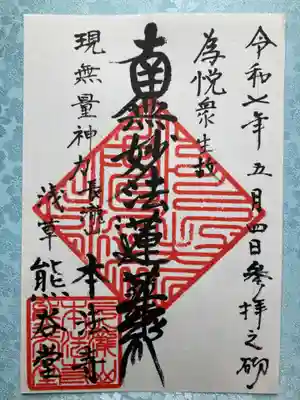 令和七年五月四日參拝之砌
為悦衆生故
南無妙法蓮華経
現無量神力
長瀧 本法寺
浅草 熊谷堂